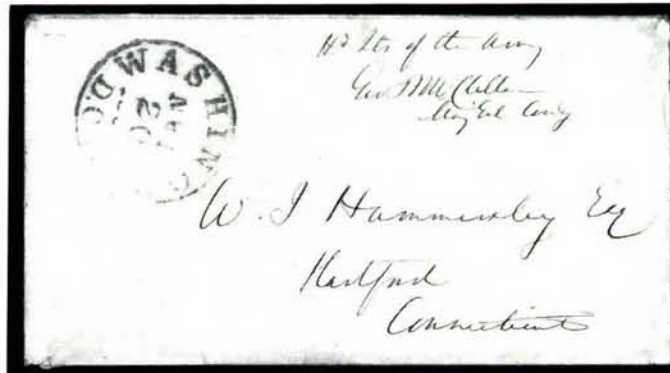 WASHING D.C.
20
Hd Qrs of the Army
Geo B McClellan
Maj Genl Comdg
W. J Hammersley Esq
Hartford
Connecticut